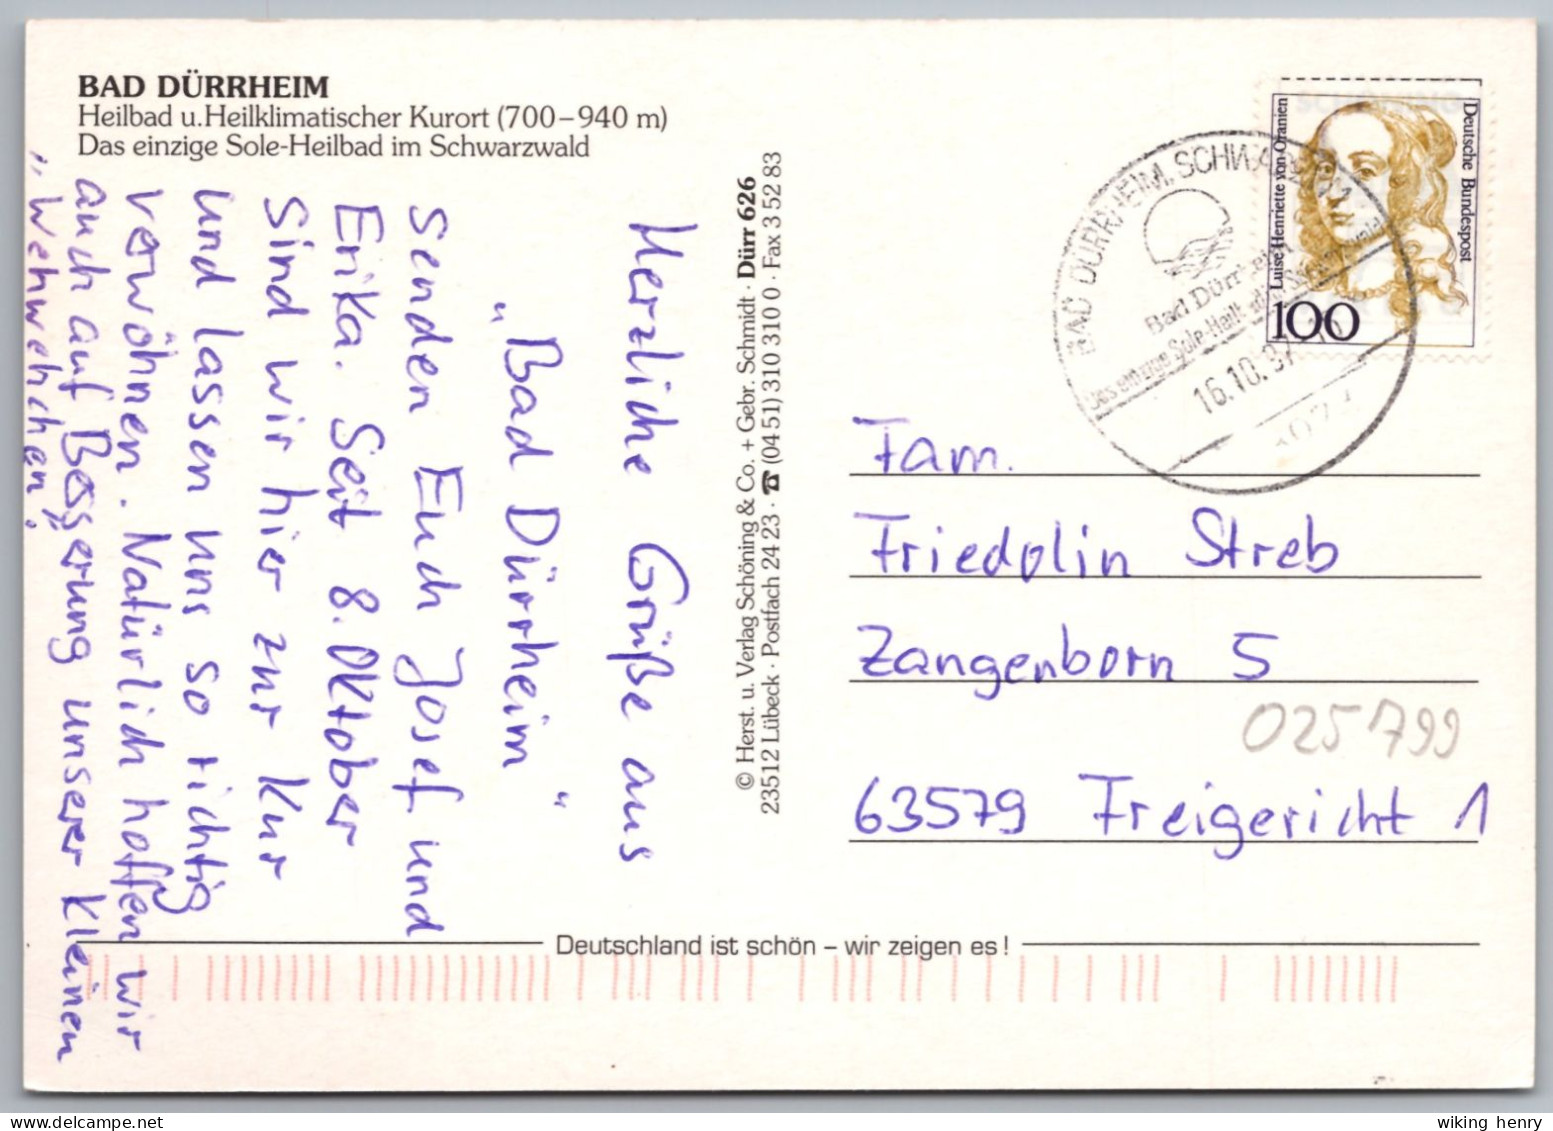 BAD DÜRRHEIM
Heilbad u. Heilklimatischer Kurort (700–940 m)
Das einzige Sole-Heilbad im Schwarzwald
Herzliche Grüße aus
"Bad Dürrheim"
senden Euch Josef und
Erika. Seit 8. Oktober
sind wir hier zur Kur
und lassen uns so richtig
verwöhnen. Natürlich hoffen wir
auch auf Besserung unserer kleinen
"Wehwehchen!
© Herst. u. Verlag Schöning & Co. + Gebr. Schmidt · Dürr 626
23512 Lübeck · Postfach 24 23 · ☎ (04 51) 310 310 0 · Fax 3 52 83
Deutsche Bundespost
Luise Henriette von Oranien
100
BAD DÜRRHEIM, SCHWARZW
Bad Dürrheim
Das einzige Sole-Heilbad im Schwarzwald
16.10.97
Fam.
Friedolin Streb
Zangenborn 5
025799
63579 Freigericht 1
Deutschland ist schön – wir zeigen es!
wiking henry